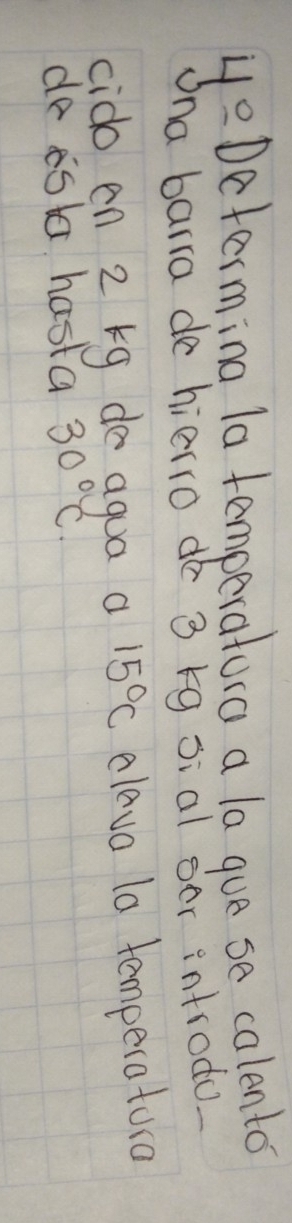 4º Determina la temperatura a la que se calentó
una barra de hierro de 3 kg si al ser introdu-
cido en 2 kg de agua a 15°C eleva la temperatura
de ésta hasta 30°C.